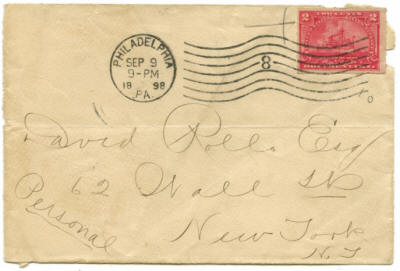 PHILADELPHIA
SEP 9
9-PM
1898
PA.
8
2 2
David Rolls Esq
62 Wall St
New York
N.Y
Personal